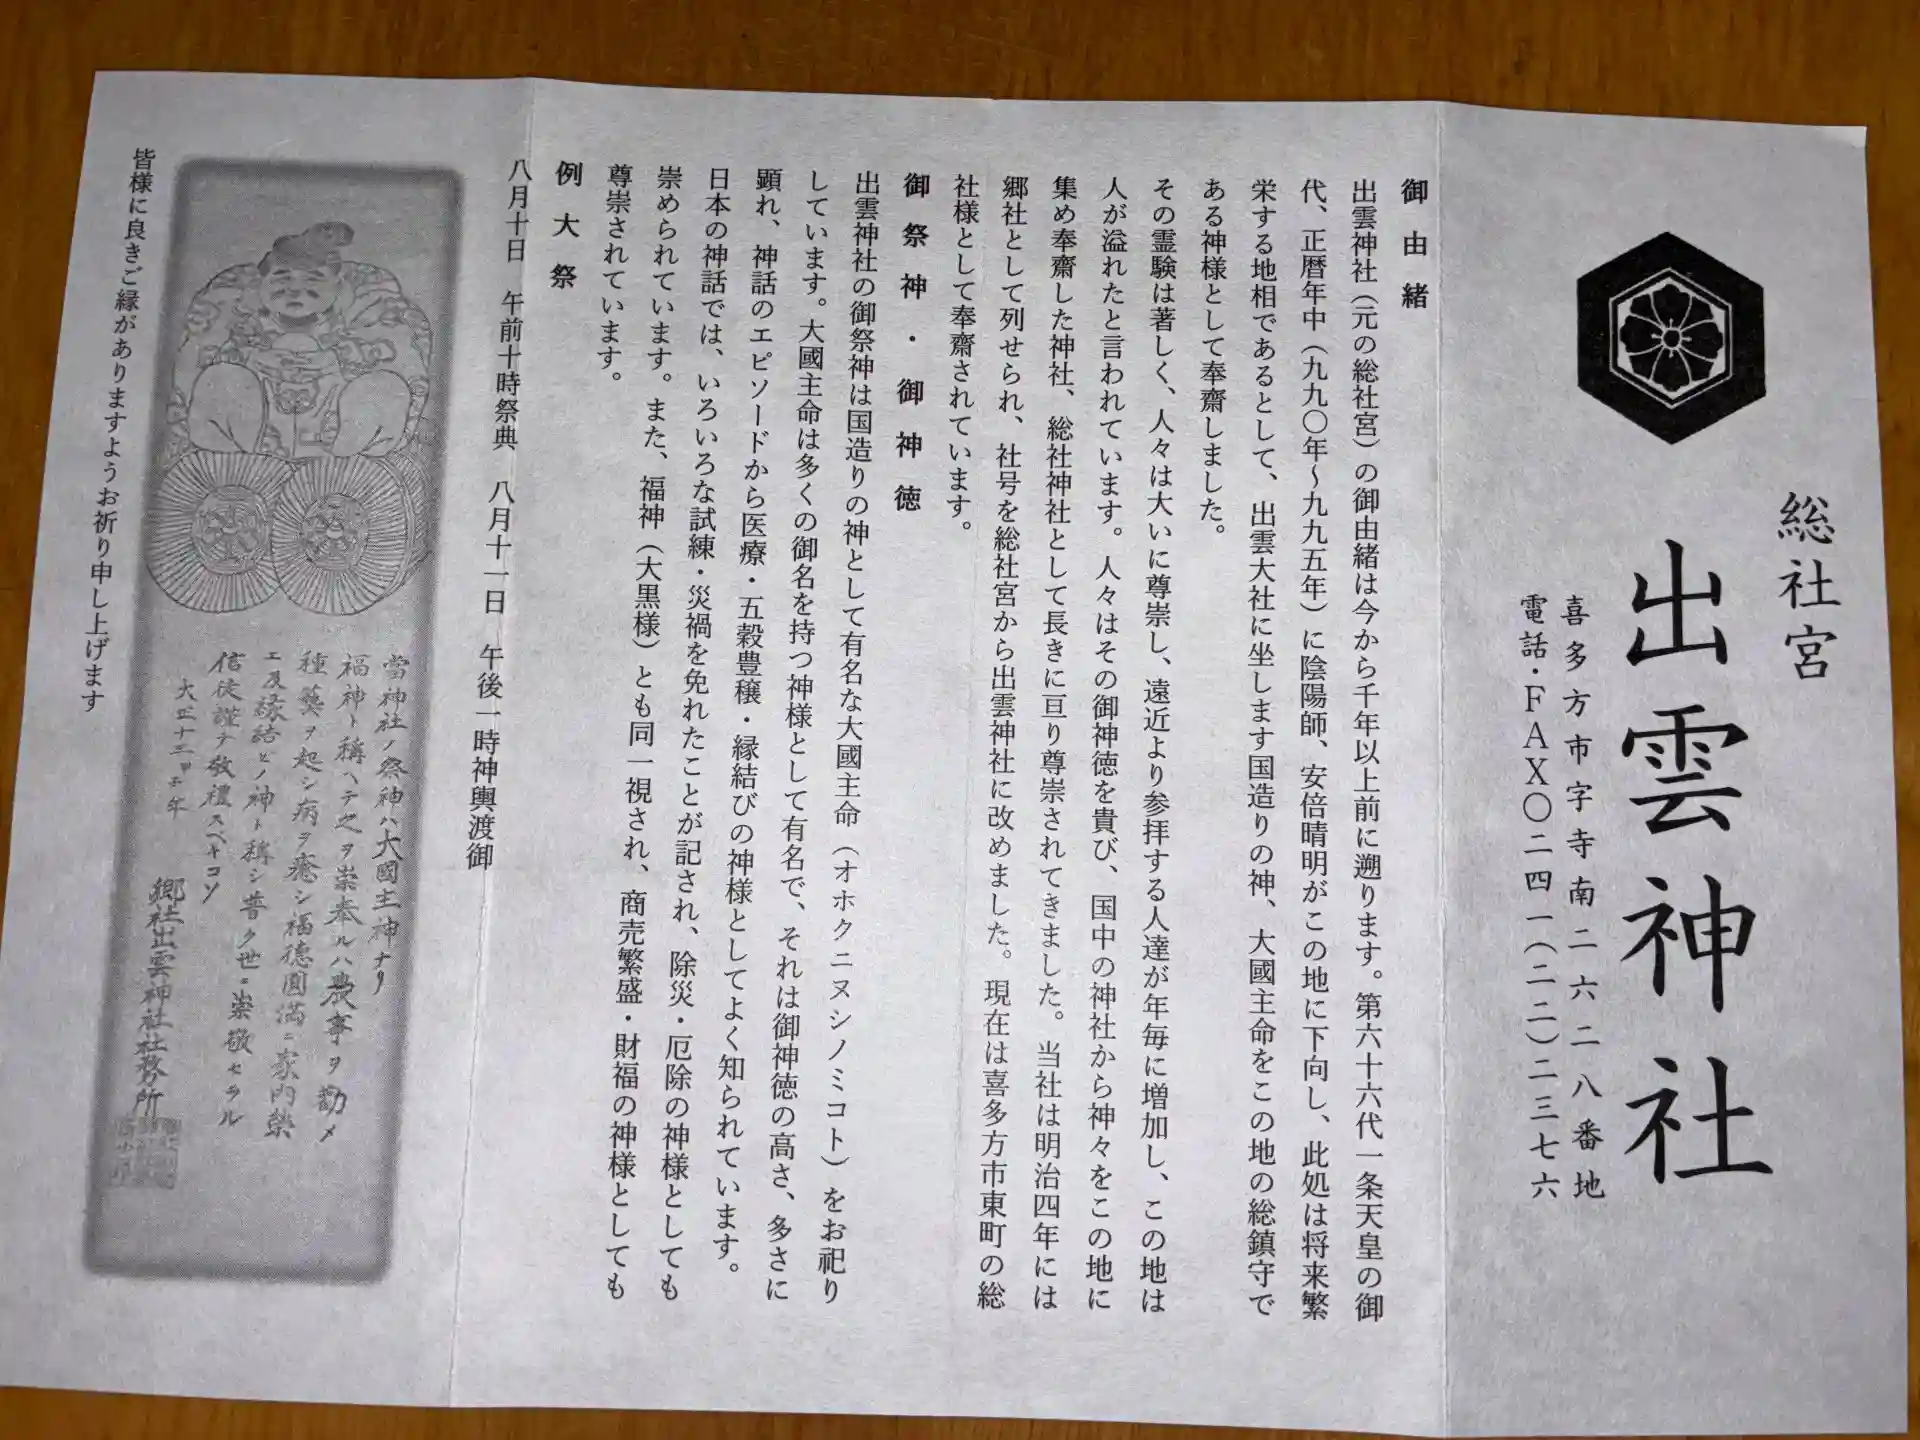 総社宮
出雲神社
喜多方市字寺南二六二八番地
電話・ＦＡＸ〇二四一（二二）二三七六
御由緒
出雲神社（元の総社宮）の御由緒は今から千年以上前に遡ります。第六十六代一条天皇の御
代、正暦年中（九九〇年～九九五年）に陰陽師、安倍晴明がこの地に下向し、此処は将来繁
栄する地相であるとして、出雲大社に坐します国造りの神、大國主命をこの地の総鎮守で
ある神様として奉齋しました。
その霊験は著しく、人々は大いに尊崇し、遠近より参拝する人達が年毎に増加し、この地は
人が溢れたと言われています。人々はその御神徳を貴び、国中の神社から神々をこの地に
集め奉齋した神社、総社神社として長きに亘り尊崇されてきました。当社は明治四年には
郷社として列せられ、社号を総社宮から出雲神社に改めました。現在は喜多方市東町の総
社様として奉齋されています。
御祭神・御神徳
出雲神社の御祭神は国造りの神として有名な大國主命（オホクニヌシノミコト）をお祀り
しています。大國主命は多くの御名を持つ神様として有名で、それは御神徳の高さ、多さに
顕れ、神話のエピソードから医療・五穀豊穣・縁結びの神様としてよく知られています。
日本の神話では、いろいろな試練・災禍を免れたことが記され、除災・厄除の神様としても
崇められています。また、福神（大黒様）とも同一視され、商売繁盛・財福の神様としても
尊崇されています。
例大祭
八月十日　午前十時祭典　八月十一日　午後一時神輿渡御
當神社ノ祭神ハ大國主神ナリ
福神ト稱ヘテ之ヲ崇奉ルハ農事ヲ勸メ
種藝ヲ起シ病ヲ癒シ福德圓満ニ家内榮
エ及縁結ビノ神ト稱シ普ク世ニ崇敬セラル
信徒謹テ敬禮スベキコソ
大正十三年
郷社出雲神社社務所
皆様に良きご縁がありますようお祈り申し上げます